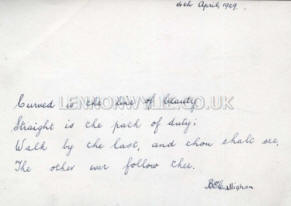 4th April, 1929.
LENNONWYLIE.CO.UK
Curved is the line of beauty
Straight is the path of duty;
Walk by the last, and thou shalt see,
The other ever follow thee.